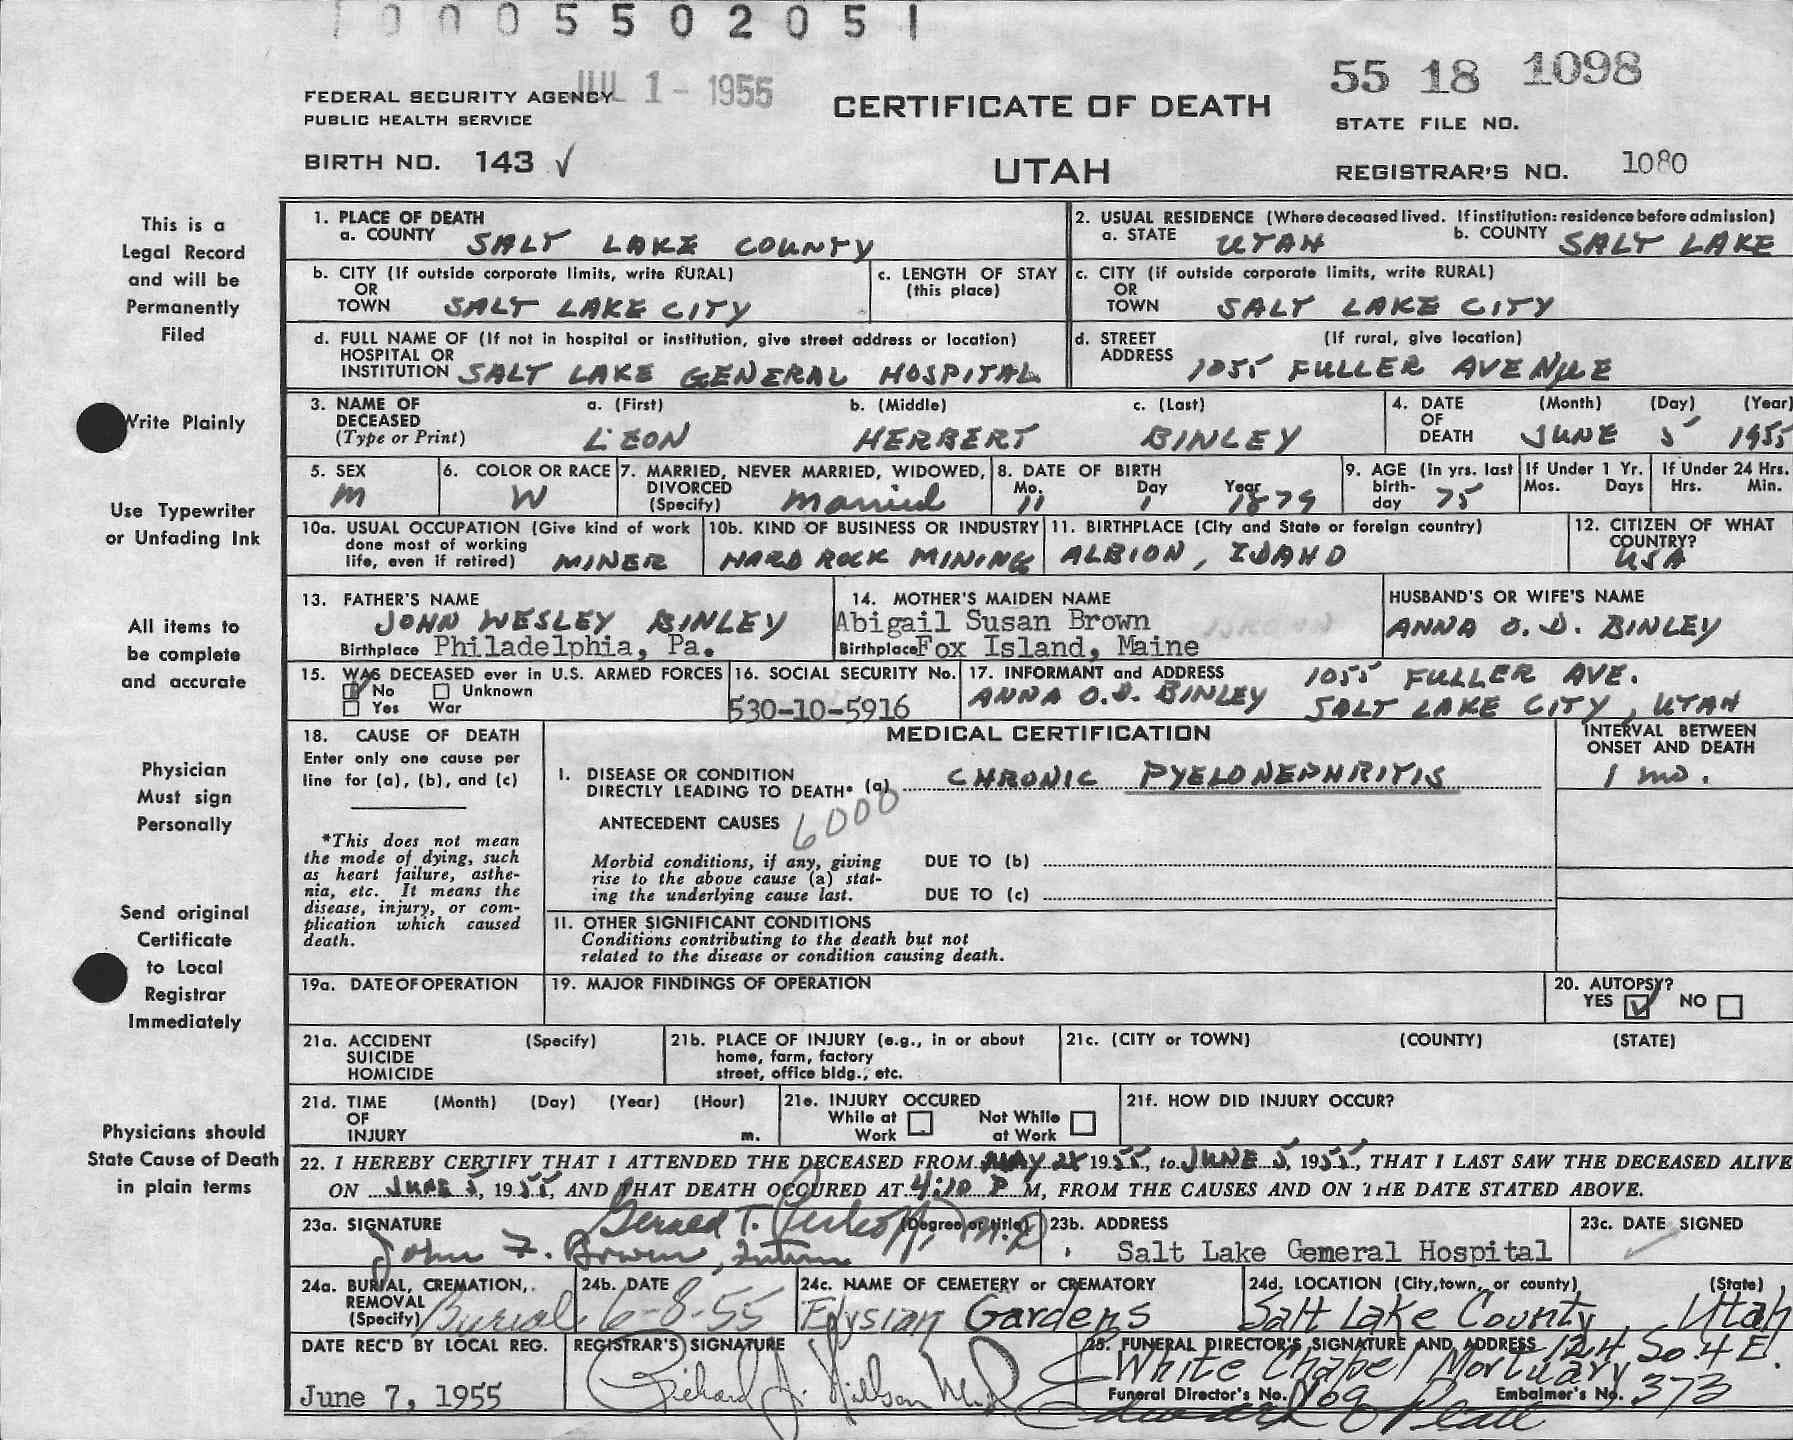 1 0 0 0 5 5 0 2 0 5 1
FEDERAL SECURITY AGENCY JUL 1 - 1955
PUBLIC HEALTH SERVICE
BIRTH NO. 143 √
CERTIFICATE OF DEATH
UTAH
55 18 1098
STATE FILE NO.
REGISTRAR'S NO. 1080
This is a
Legal Record
and will be
Permanently
Filed
Write Plainly
Use Typewriter
or Unfading Ink
All items to
be complete
and accurate
Physician
Must sign
Personally
Send original
Certificate
to Local
Registrar
Immediately
Physicians should
State Cause of Death
in plain terms
1. PLACE OF DEATH
a. COUNTY SALT LAKE COUNTY
2. USUAL RESIDENCE (Where deceased lived. If institution: residence before admission)
a. STATE UTAH b. COUNTY SALT LAKE
b. CITY (If outside corporate limits, write RURAL)
OR
TOWN SALT LAKE CITY
c. LENGTH OF STAY
(this place)
c. CITY (if outside corporate limits, write RURAL)
OR
TOWN SALT LAKE CITY
d. FULL NAME OF (If not in hospital or institution, give street address or location)
HOSPITAL OR
INSTITUTION SALT LAKE GENERAL HOSPITAL
d. STREET (If rural, give location)
ADDRESS 1055 FULLER AVENUE
3. NAME OF DECEASED (Type or Print)
a. (First) b. (Middle) c. (Last)
LEON HERBERT BINLEY
4. DATE OF DEATH (Month) (Day) (Year)
JUNE 5 1955
5. SEX
M
6. COLOR OR RACE
W
7. MARRIED, NEVER MARRIED, WIDOWED,
DIVORCED
(Specify) Married
8. DATE OF BIRTH
Mo. Day Year
11 1 1879
9. AGE (In yrs. last
birth-
day 75
If Under 1 Yr.
Mos. Days
If Under 24 Hrs.
Hrs. Min.
10a. USUAL OCCUPATION (Give kind of work
done most of working
life, even if retired) MINER
10b. KIND OF BUSINESS OR INDUSTRY
HARD ROCK MINING
11. BIRTHPLACE (City and State or foreign country)
ALBION, IDAHO
12. CITIZEN OF WHAT
COUNTRY?
USA
13. FATHER'S NAME
JOHN WESLEY BINLEY
Birthplace Philadelphia, Pa.
14. MOTHER'S MAIDEN NAME
Abigail Susan Brown BROWN
Birthplace Fox Island, Maine
HUSBAND'S OR WIFE'S NAME
ANNA O. D. BINLEY
15. WAS DECEASED ever in U.S. ARMED FORCES
No Unknown
Yes War
16. SOCIAL SECURITY No.
530-10-5916
17. INFORMANT and ADDRESS
ANNA O. D. BINLEY 1055 FULLER AVE.
SALT LAKE CITY, UTAH
18. CAUSE OF DEATH
Enter only one cause per
line for (a), (b), and (c)
*This does not mean
the mode of dying, such
as heart failure, asthe-
nia, etc. It means the
disease, injury, or com-
plication which caused
death.
MEDICAL CERTIFICATION
INTERVAL BETWEEN
ONSET AND DEATH
I. DISEASE OR CONDITION
DIRECTLY LEADING TO DEATH* (a) CHRONIC PYELONEPHRITIS 1 mo.
ANTECEDENT CAUSES 6000
Morbid conditions, if any, giving
rise to the above cause (a) stat-
ing the underlying cause last.
DUE TO (b)
DUE TO (c)
II. OTHER SIGNIFICANT CONDITIONS
Conditions contributing to the death but not
related to the disease or condition causing death.
19a. DATE OF OPERATION
19. MAJOR FINDINGS OF OPERATION
20. AUTOPSY?
YES NO
21a. ACCIDENT (Specify)
SUICIDE
HOMICIDE
21b. PLACE OF INJURY (e.g., in or about
home, farm, factory
street, office bldg., etc.
21c. (CITY or TOWN) (COUNTY) (STATE)
21d. TIME (Month) (Day) (Year) (Hour)
OF
INJURY m.
21e. INJURY OCCURED
While at Work Not While at Work
21f. HOW DID INJURY OCCUR?
22. I HEREBY CERTIFY THAT I ATTENDED THE DECEASED FROM MAY 28 1955, to JUNE 5, 1955, THAT I LAST SAW THE DECEASED ALIVE
ON JUNE 5, 1955, AND THAT DEATH OCCURED AT 4:10 P M, FROM THE CAUSES AND ON THE DATE STATED ABOVE.
23a. SIGNATURE Gerald T. Perkoff, M.D. (Degree or title)
John F. Bowen, Intern
23b. ADDRESS
Salt Lake General Hospital
23c. DATE SIGNED
24a. BURIAL, CREMATION,
REMOVAL
(Specify) Burial
24b. DATE
6-8-55
24c. NAME OF CEMETERY or CREMATORY
Elysian Gardens
24d. LOCATION (City, town, or county) (State)
Salt Lake County, Utah
DATE REC'D BY LOCAL REG.
June 7, 1955
REGISTRAR'S SIGNATURE
Richard J. M.D.
25. FUNERAL DIRECTOR'S SIGNATURE AND ADDRESS 124 So. 4 E.
White Chapel Mortuary
Funeral Director's No. 169 Embalmer's No. 373
Edward